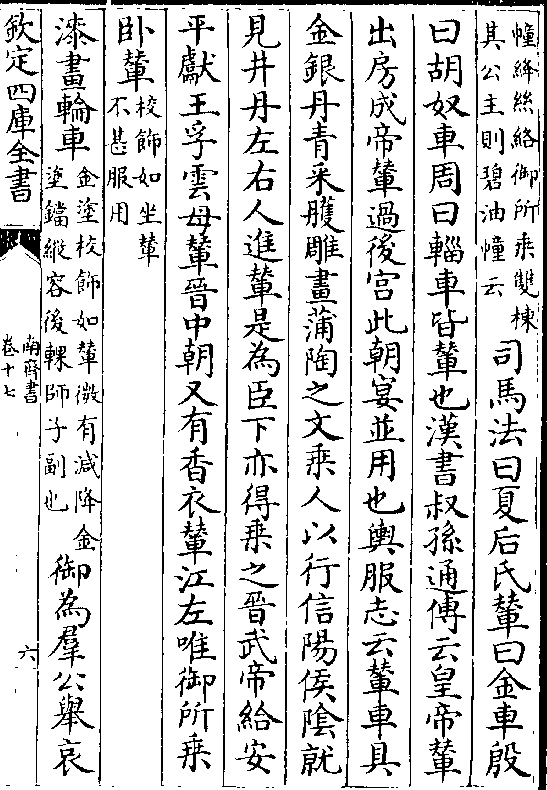 幢絳絲絡御所乘雙棟
其公主則碧油幢云
司馬法曰夏后氏輦曰金車殷
曰胡奴車周曰輜車皆輦也漢書叔孫通傳云皇帝輦
出房成帝輦過後宫此朝宴並用也輿服志云輦車具
金銀丹青采雘雕畫蒲陶之文乘人以行信陽侯陰就
見井丹左右人進輦是為臣下亦得乘之晉武帝給安
平獻王孚雲母輦晉中朝又有香衣輦江左唯御所乘
卧輦
校飾如坐輦
不甚服用
漆畫輪車
金塗校飾如輦微有減降金
塗鐺縱容後輠師子副也
御為羣公舉哀
欽定四庫全書
南齊書
卷十七
六